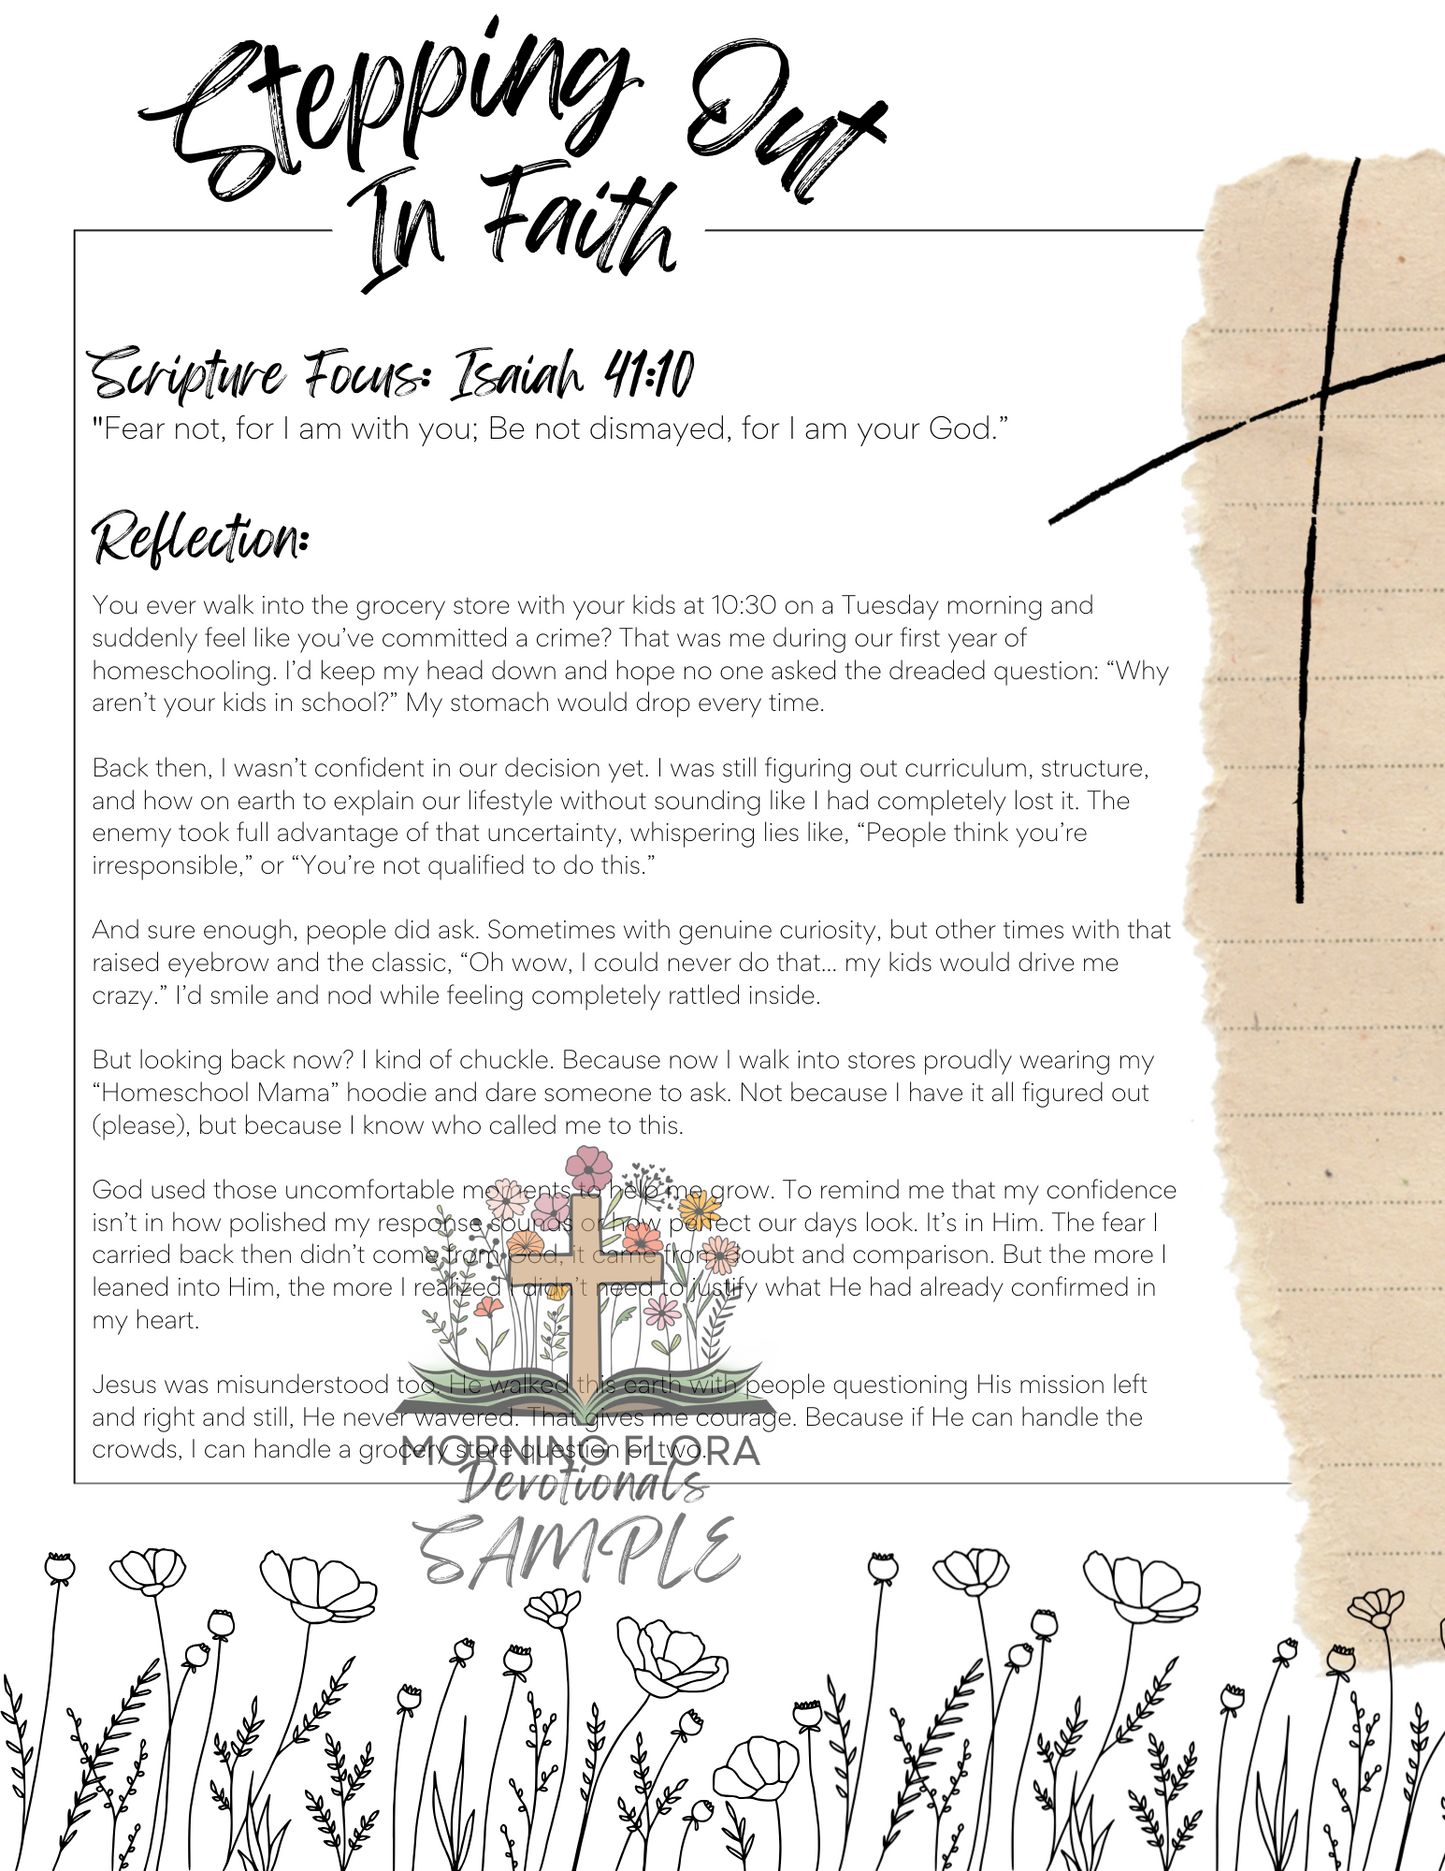 Stepping Out
In Faith
Scripture Focus: Isaiah 41:10
"Fear not, for I am with you; Be not dismayed, for I am your God.”
Reflection:
You ever walk into the grocery store with your kids at 10:30 on a Tuesday morning and
suddenly feel like you’ve committed a crime? That was me during our first year of
homeschooling. I’d keep my head down and hope no one asked the dreaded question: “Why
aren’t your kids in school?” My stomach would drop every time.
Back then, I wasn’t confident in our decision yet. I was still figuring out curriculum, structure,
and how on earth to explain our lifestyle without sounding like I had completely lost it. The
enemy took full advantage of that uncertainty, whispering lies like, “People think you’re
irresponsible,” or “You’re not qualified to do this.”
And sure enough, people did ask. Sometimes with genuine curiosity, but other times with that
raised eyebrow and the classic, “Oh wow, I could never do that... my kids would drive me
crazy.” I’d smile and nod while feeling completely rattled inside.
But looking back now? I kind of chuckle. Because now I walk into stores proudly wearing my
“Homeschool Mama” hoodie and dare someone to ask. Not because I have it all figured out
(please), but because I know who called me to this.
God used those uncomfortable moments to help me grow. To remind me that my confidence
isn’t in how polished my response sounds or how perfect our days look. It’s in Him. The fear I
carried back then didn’t come from God, it came from doubt and comparison. But the more I
leaned into Him, the more I realized I didn’t need to justify what He had already confirmed in
my heart.
Jesus was misunderstood too. He walked this earth with people questioning His mission left
and right and still, He never wavered. That gives me courage. Because if He can handle the
crowds, I can handle a grocery store question or two.
MORNING FLORA
Devotionals
SAMPLE